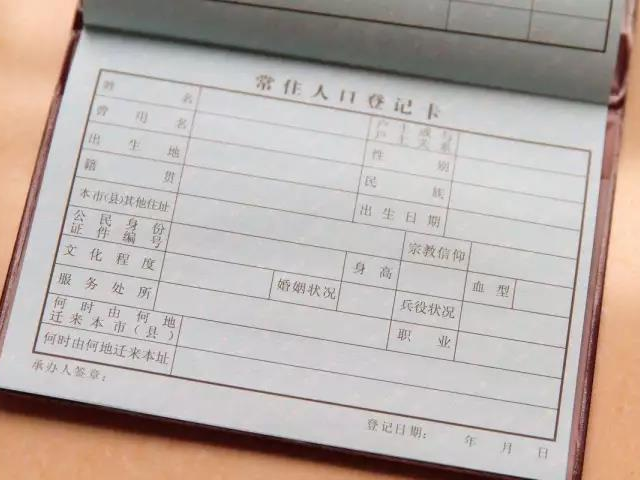 常住人口登记卡
姓名 户主或与户主关系
曾用名 性别
出生地 民族
籍贯 出生日期
本市(县)其他住址 宗教信仰
公民身份证件编号 身高 血型
文化程度 婚姻状况 兵役状况
服务处所 职业
何时由何地迁来本市(县)
何时由何地迁来本址
承办人签章：
登记日期： 年 月 日